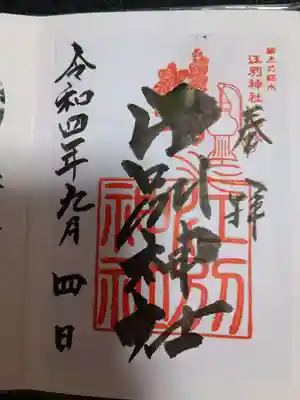 奉拝
江別神社
江別神社
江別神社
令和四年九月四日